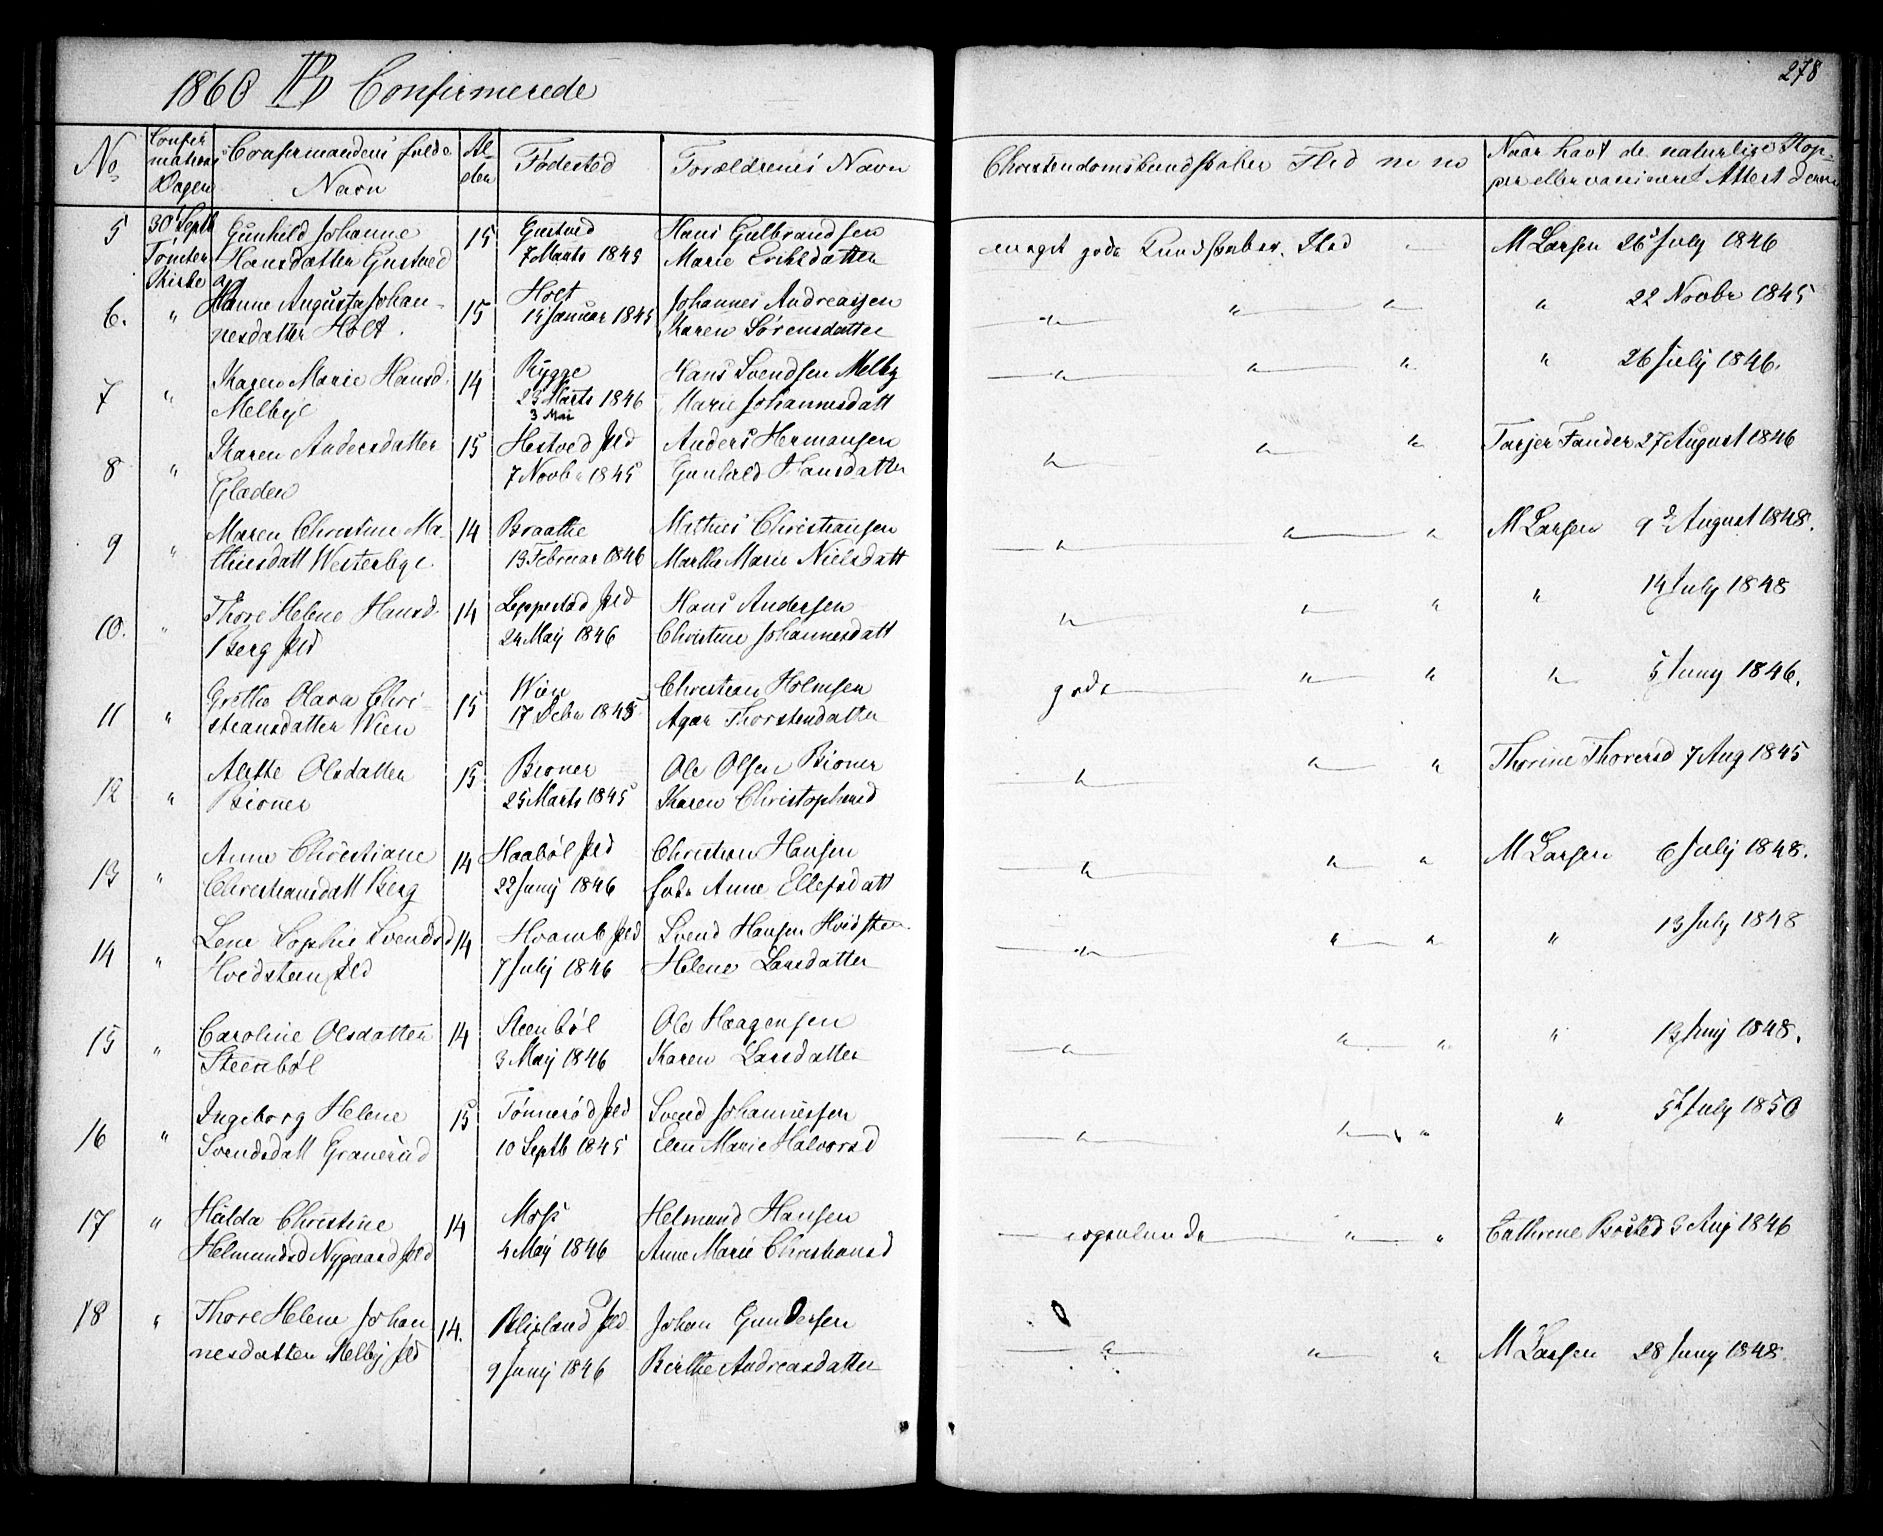 278
1860 Confirmerede
No
Confir
mations
Dagen
Confirmandens fulde
Navn
Al-
der
Fødested
Forældrenes Navn
Christendomskundskaber Flid
Naar havt de naturlige Kop-
per eller vaccineret Attest derom
5 30 Septb Gunhild Johanne 15 Gustved Hans Gulbrandsen meget gode Kundskaber. Flid — M Larsen 26 July 1846
Tomter Hansdatter Gustved 7 Marts 1845 Marie Eriksdatter
Kirke
6. " Hanne Augusta Johan- 15 Holt Johannes Andreassen " " " " 22 Novbr 1845
nesdatter Holt. 15 Januar 1845 Karen Sørensdatter
7 " Karen Marie Hansd. 14 Rygge Hans Svendsen Melby " " " " 26 July 1846.
Melbye 23 Marts 1846 Marie Johannesdatt
3 Mai
8 " Karen Andersdatter 15 Hestved Anders Hermansen " " " Tarjer Fander 27 August 1846
Gladen 7 Novbr 1845 Gunhild Hansdatter
9 " Maren Christine Ma- 14 Braathe Mathies Christiansen " " " M Larsen 9 August 1848.
thiesdatt Westerbye 13 Februar 1846 Marthe Marie Nielsdatt
10. " Thore Helene Hansd. 14 Leppestad Hans Andersen " " " " 14 July 1848
Berg 24 May 1846 Christine Johannesdatt
11 " Grethe Olava Chri- 15 Wien Christian Holmsen gode " " " 5 Juny 1846.
stiansdatter Wien 17 Debr 1845 Agar Thorstensdatter
12 " Alette Olsdatter 15 Bioner Ole Olsen Bioner " " " Thorine Thoresd 7 Aug 1845
Bioner 25 Marts 1845 Karen Christophersd
13 " Anne Christiane 14 Haabøl Christian Hansen " " " M Larsen 6 July 1848.
Christiansdatt Berg 22 Junj 1846 Anne Ellefsdatt
14 " Lene Sophie Svendsd 14 Hvamb Svend Hansen Hvidsten " " " " 13 July 1848
Hvidsteen 7 July 1846 Helene Larsdatter
15 " Caroline Olsdatter 14 Steenbøl Ole Haagensen " " " " 13 Junj 1848.
Steenbøl 3 May 1846 Karen Larsdatter
16 " Ingeborg Helene 15 Tønnerød Svend Johannessen " " " " 5 July 1850
Svendsdatt Granerud 10 Septb 1845 Elen Marie Halvorsd
17 " Hilda Christine 14 Moss Helmund Hansen " " Cathrine Bøsted 3 Aug 1846
Helmundsd Nygaard 4 May 1846 Anne Marie Christiansd
18 " Thore Helene Johan 14. Blixland Johan Gundersen " " " M Larsen 28 Juny 1848.
nesdatter Melby 9 Junj 1846 Birthe Andreasdatter